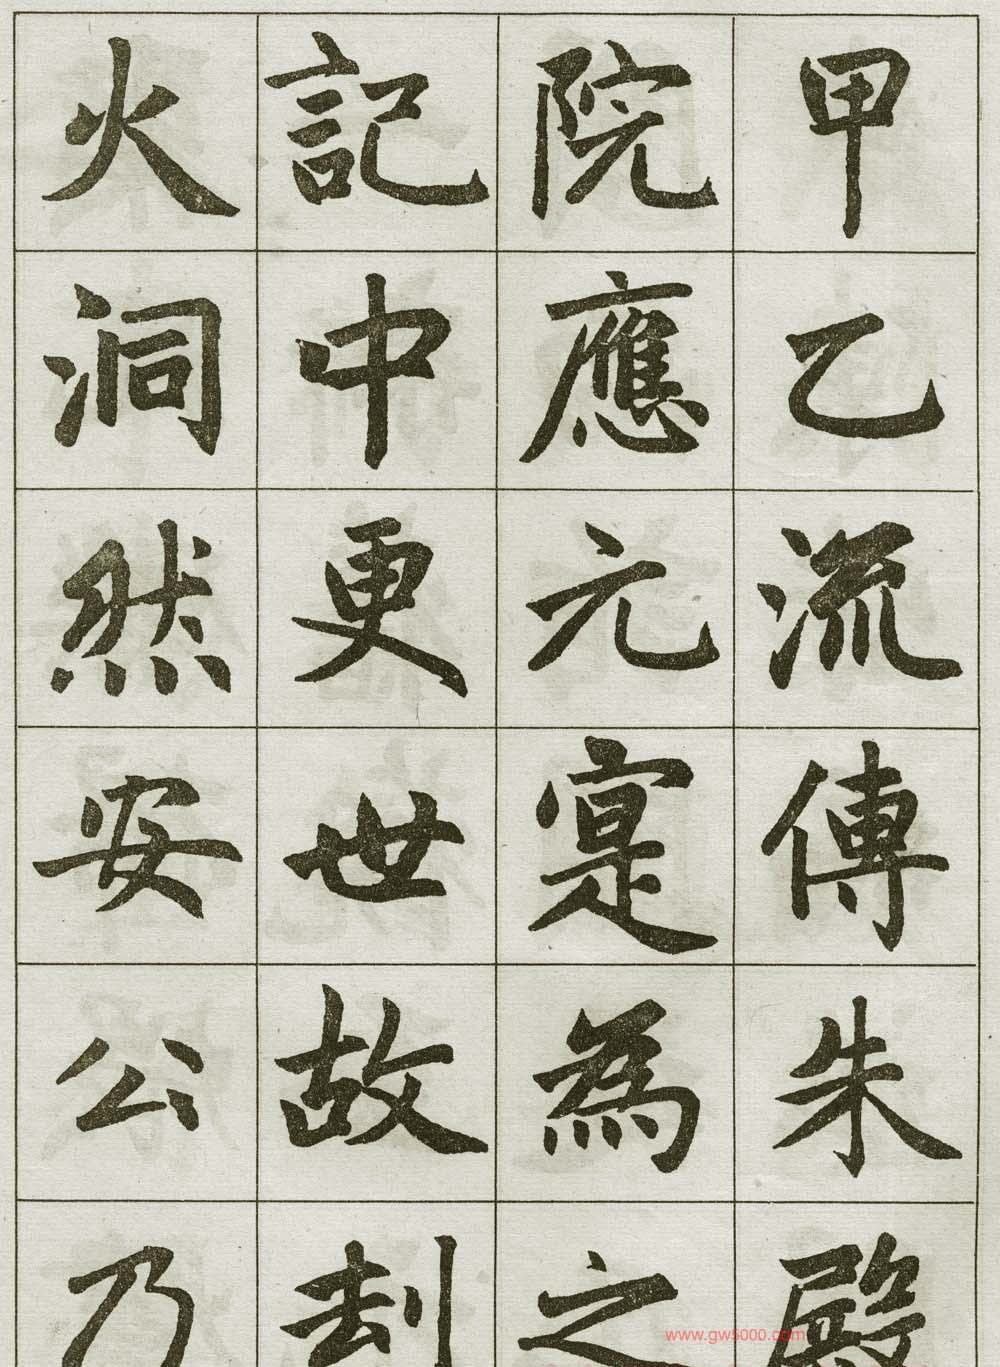 甲乙流傳朱殿
院應元寔為之
記中更世故刦
火洞然安公乃
www.gw5000.com